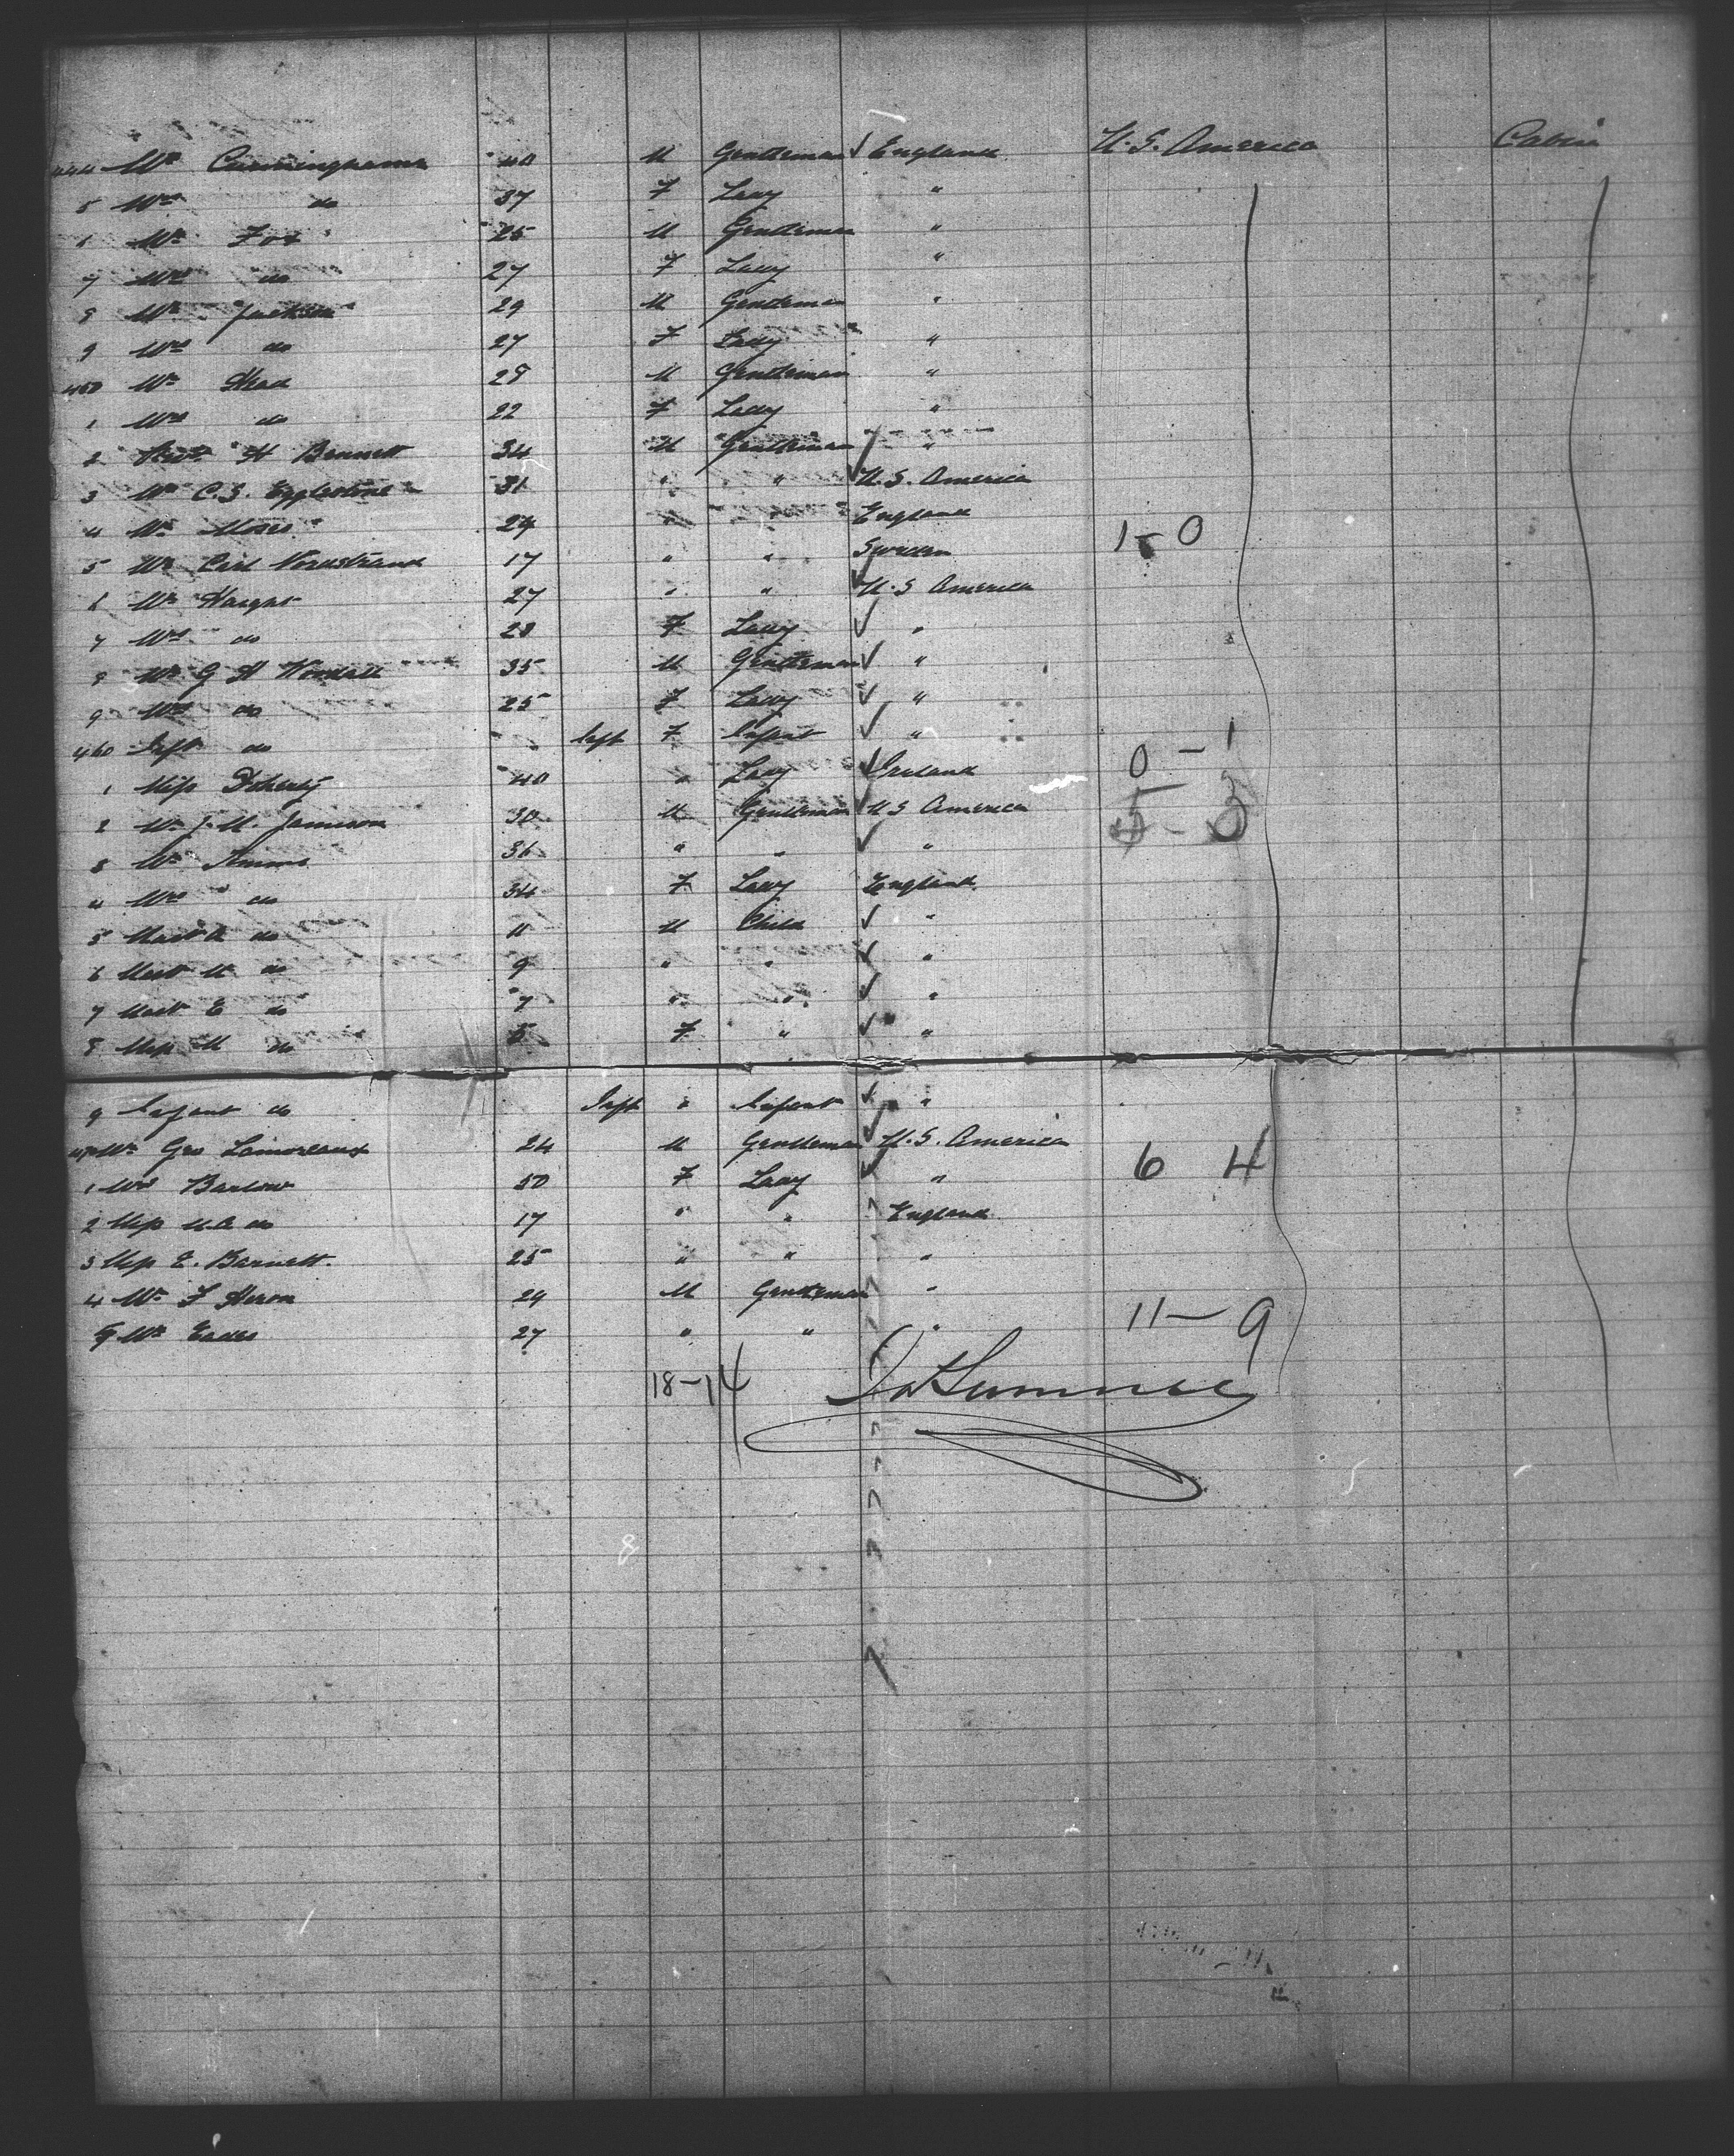 444 Mr Cunninghame 40 M Gentleman England U.S. America Cabin
5 Mrs do 37 F Lady "
6 Mr Fox 25 M Gentleman "
7 Mrs do 27 F Lady "
8 Mr Jackson 29 M Gentleman "
9 Mrs do 27 F Lady "
450 Mr Head 28 M Gentleman "
1 Mrs do 22 F Lady "
2 Revd H Bennett 34 M Gentleman "
3 Mr C.S. Egglestone 31 " " U.S. America
4 Mr Moses 24 " " England
5 Mr Carl Nordstrand 17 " " Sweden 1-0
6 Mr Haight 27 " " U.S America
7 Mrs do 28 F Lady "
8 Mr G H Woodall 35 M Gentleman "
9 Mrs do 25 F Lady "
460 Inft do Inft F Infant " 0 - 1
1 Miss Doherty 40 " Lady Ireland
2 Mr J.M. Jamieson 30 M Gentleman U S America
3 Mr Simms 36 " " "
4 Mrs do 34 F Lady England
5 Mast A do 11 M Child "
6 Mast M do 9 " " "
7 Mast E do 7 " " "
8 Miss M do 5 F " "
9 Infant do Inft " Infant "
470 Mr Geo Lamoreaux 24 M Gentleman U.S. America 6 4
1 Mrs Barlow 50 F Lady "
2 Miss M.A do 17 " " England
3 Miss E. Barnett. 25 " " "
4 Mr F Heron 29 M Gentleman "
5 Mr Eades 27 " " " 11-9
18-14